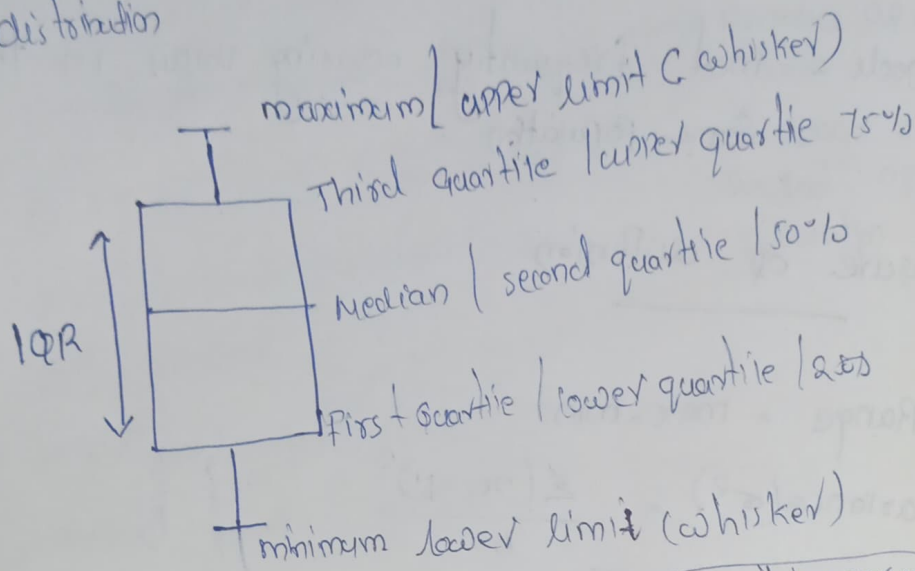 distribution
maximum / upper limit (whisker)
Third Quartile / upper quartile 75%
Median / second quartile / 50%
IQR
first Quartile / lower quartile /
minimum lower limit (whisker)